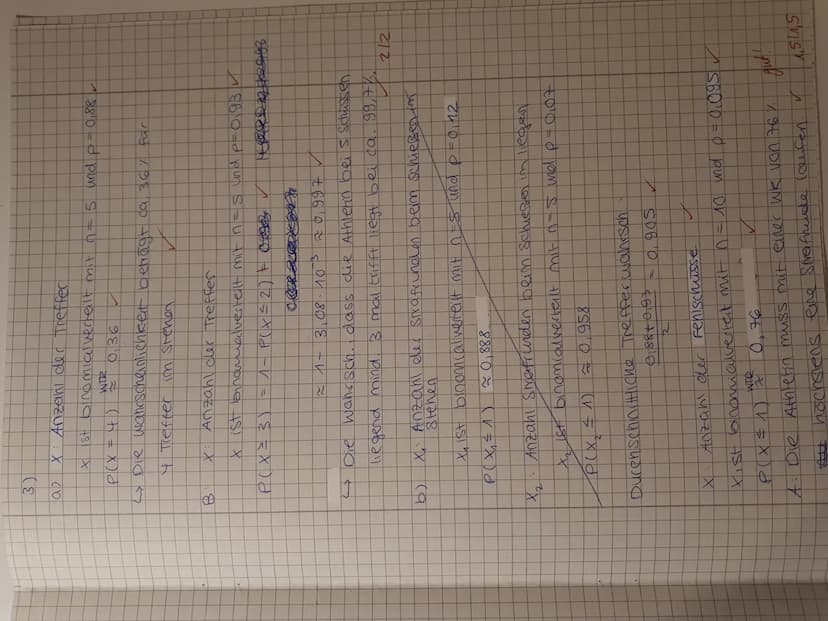 3)
a) X: Anzahl der Treffer
X ist binomialverteilt mit n=5 und p=0,88 ✓
P(X=4) WTR ≈ 0,36 ✓
↳ Die Wahrscheinlichkeit beträgt ca 36% für
4 Treffer im Stehen ✓
B X: Anzahl der Treffer
X ist binomialverteilt mit n=5 und p=0,93 ✓
P(X≥3) = 1-P(X≤2) ✓
≈ 1 - 3,08·10⁻³ ≈ 0,997 ✓
↳ Die Wahrsch., dass die Athletin bei 5 Schüssen
liegend mind. 3 mal trifft liegt bei ca. 99,7%. ✓ 2/2
b) X₁: Anzahl der Strafrunden beim Schießen im
Stehen
X₁ ist binomialverteilt mit n=5 und p=0,12
P(X₁≤1) ≈ 0,888
X₂: Anzahl Strafrunden beim Schießen im Liegen
X₂ ist binomialverteilt mit n=5 und p=0,07
P(X₂≤1) ≈ 0,958
Durchschnittliche Trefferwahrsch.
0,88+0,93 / 2 = 0,905 ✓
X: Anzahl der Fehlschüsse ✓
X ist binomialverteilt mit n=10 und p=0,095 ✓
P(X≤1) WTR ≈ 0,76 ✓
A: Die Athletin muss mit einer Wk von 76% gut!
höchstens eine Strafrunde laufen ✓ 1,5/1,5